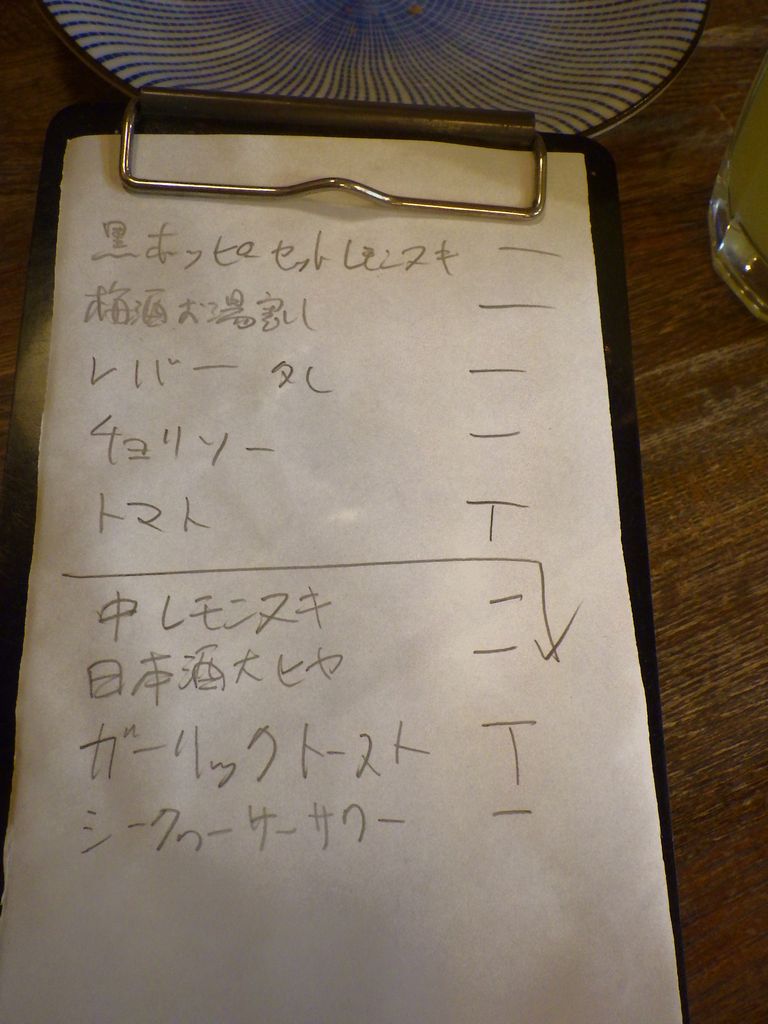 黒ホッピーセットレモンヌキ 一
梅酒お湯割し 一
レバー タレ 一
チョリソー 一
トマト T
中レモンヌキ 一
日本酒大ヒヤ 一
ガーリックトースト T
シークワーサーサワー 一